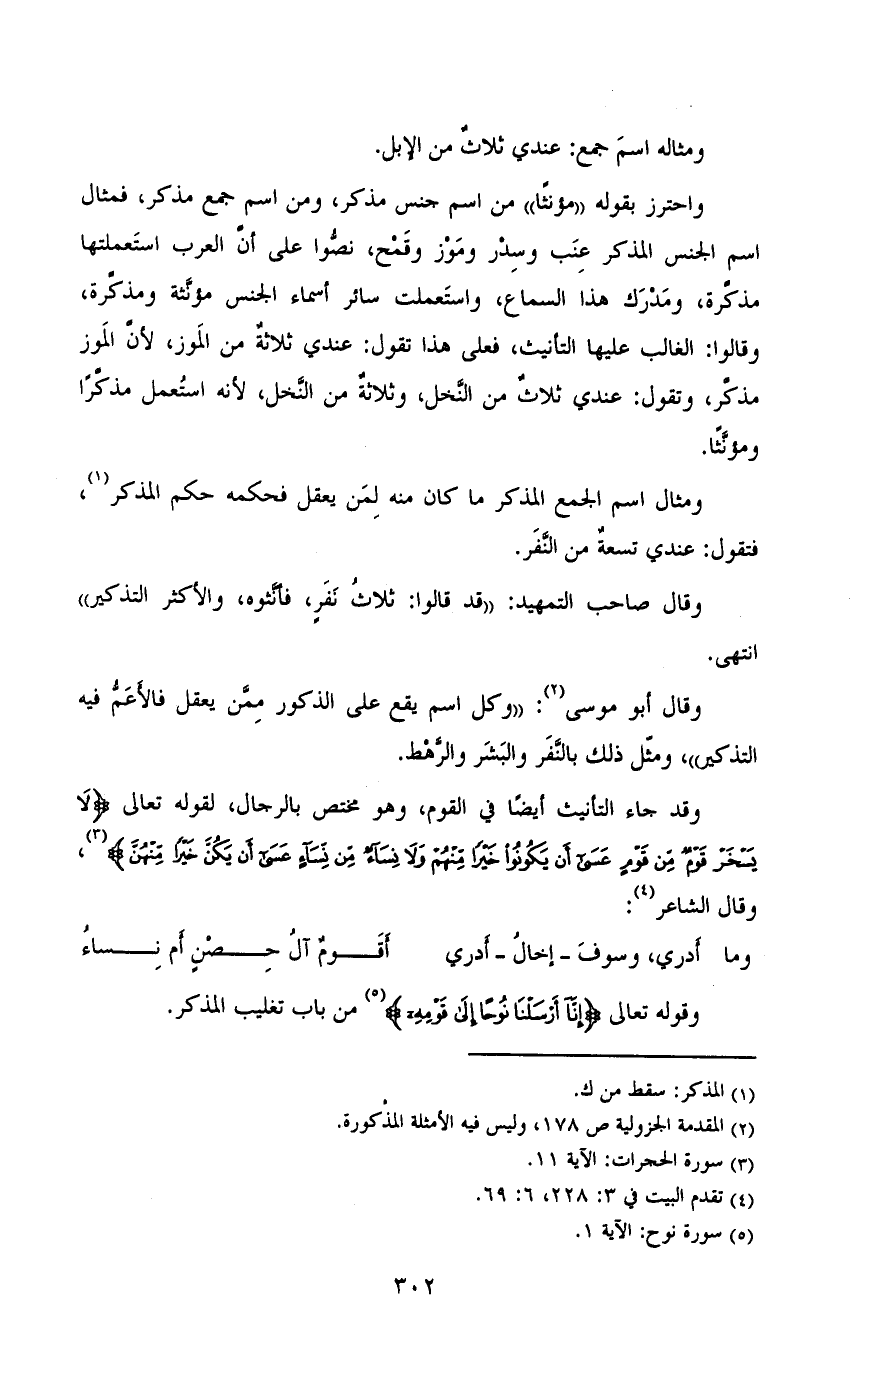 ومثاله اسمَ جمع: عندي ثلاثٌ من الإبل.
واحترز بقوله ((مؤنثًا)) من اسم جنس مذكر، ومن اسم جمع مذكر، فمثال
اسم الجنس المذكر عِنَب وسِدْر ومَوْز وقَمْح، نصُّوا على أنَّ العرب استَعملتها
مذكَّرة، ومَدْرَك هذا السماع، واستَعملت سائر أسماء الجنس مؤنَّثة ومذكَّرة،
وقالوا: الغالب عليها التأنيث، فعلى هذا تقول: عندي ثلاثةٌ من المَوز، لأنَّ المَوز
مذكَّر، وتقول: عندي ثلاثٌ من النَّخل، وثلاثةٌ من النَّخل، لأنه استُعمل مذكَّرًا
ومؤنَّثًا.
ومثال اسم الجمع المذكر ما كان منه لِمَن يعقل فحكمه حكم المذكر(١)،
فتقول: عندي تسعةٌ من النَّفَر.
وقال صاحب التمهيد: ((قد قالوا: ثلاثُ نَفَرٍ، فأنَّثوه، والأكثر التذكير))
انتهى.
وقال أبو موسى(٢): ((وكل اسم يقع على الذكور مِمَّن يعقل فالأَعَمُّ فيه
التذكير))، ومثّل ذلك بالنَّفَر والبَشَر والرَّهْط.
وقد جاء التأنيث أيضًا في القوم، وهو مختص بالرجال، لقوله تعالى ﴿لَا
يَسْخَرْ قَوْمٌ مِّن قَوْمٍ عَسَىٰٓ أَن يَكُونُوا۟ خَيْرًا مِّنْهُمْ وَلَا نِسَآءٌ مِّن نِّسَآءٍ عَسَىٰٓ أَن يَكُنَّ خَيْرًا مِّنْهُنَّ﴾(٣)،
وقال الشاعر(٤):
وما أَدري، وسوفَ - إخالُ - أَدري أَقَـــومٌ آلُ حِـــصْنٍ أَم نِـــساءُ
وقوله تعالى ﴿إِنَّآ أَرْسَلْنَا نُوحًا إِلَىٰ قَوْمِهِۦ﴾(٥) من باب تغليب المذكر.
(١) المذكر: سقط من ك.
(٢) المقدمة الجزولية ص ١٧٨، وليس فيه الأمثلة المذْكورة.
(٣) سورة الحجرات: الآية ١١.
(٤) تقدم البيت في ٣: ٢٢٨، ٦: ٦٩.
(٥) سورة نوح: الآية ١.
٣٠٢